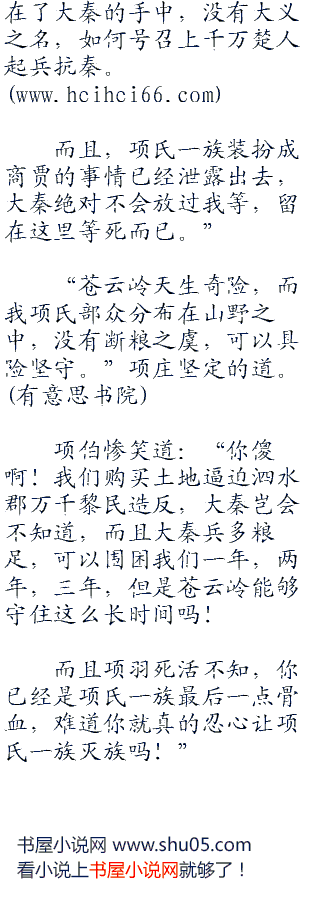 在了大秦的手中，没有大义
之名，如何号召上千万楚人
起兵抗秦。
(www.hcihci66.com)
而且，项氏一族装扮成
商贾的事情已经泄露出去，
大秦绝对不会放过我等，留
在这里等死而已。”
“苍云岭天生奇险，而
我项氏部众分布在山野之
中，没有断粮之虞，可以具
险坚守。”项庄坚定的道。
(有意思书院)
项伯惨笑道：“你傻
啊！我们购买土地逼迫泗水
郡万千黎民造反，大秦岂会
不知道，而且大秦兵多粮
足，可以围困我们一年，两
年，三年，但是苍云岭能够
守住这么长时间吗！
而且项羽死活不知，你
已经是项氏一族最后一点骨
血，难道你就真的忍心让项
氏一族灭族吗！”
书屋小说网 www.shu05.com
看小说上书屋小说网就够了！